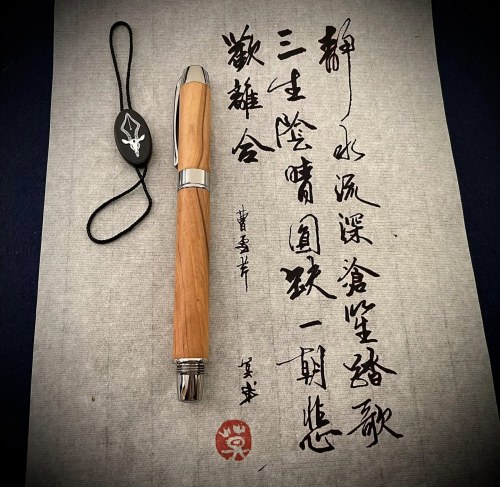 静水流深滄笙踏歌
三生陰晴圓缺一朝悲
歡離合
曹雪芹
莫